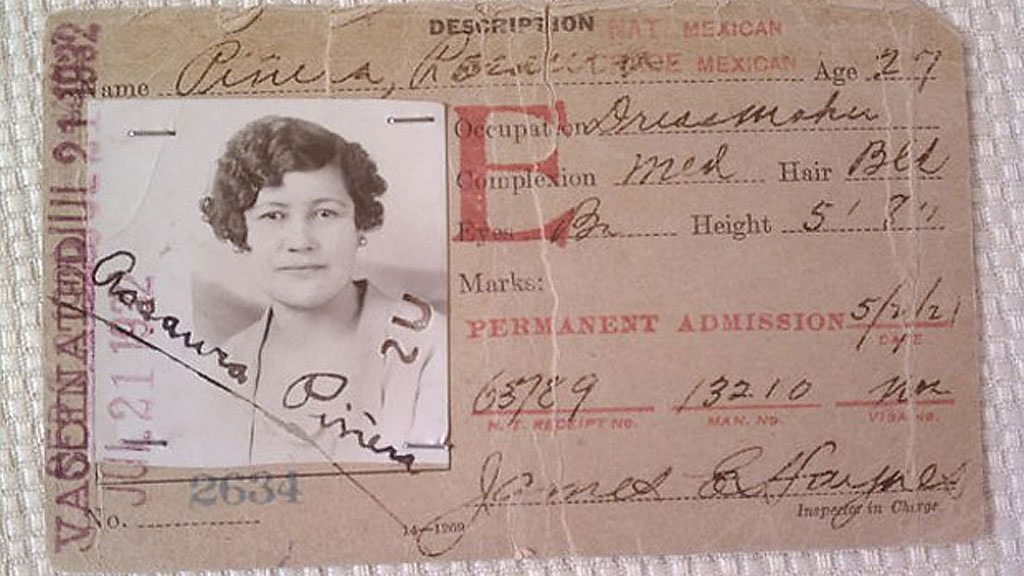 DESCRIPTION NAT. MEXICAN
MEXICAN
Name Piñera, Rosaura Age 27
Occupation Dressmaker
Complexion Med Hair Blk
Eyes Br Height 5'
E
Marks:
PERMANENT ADMISSION 5/2/21
DATE
65789 13210 Non
H. T. RECEIPT NO. MAN. NO. VISA NO.
James E Haynes
Inspector in Charge.
2634
No.
14—1209
Rosaura
Piñera
VACCINATED JUL 21 1932
JUL 21 1932